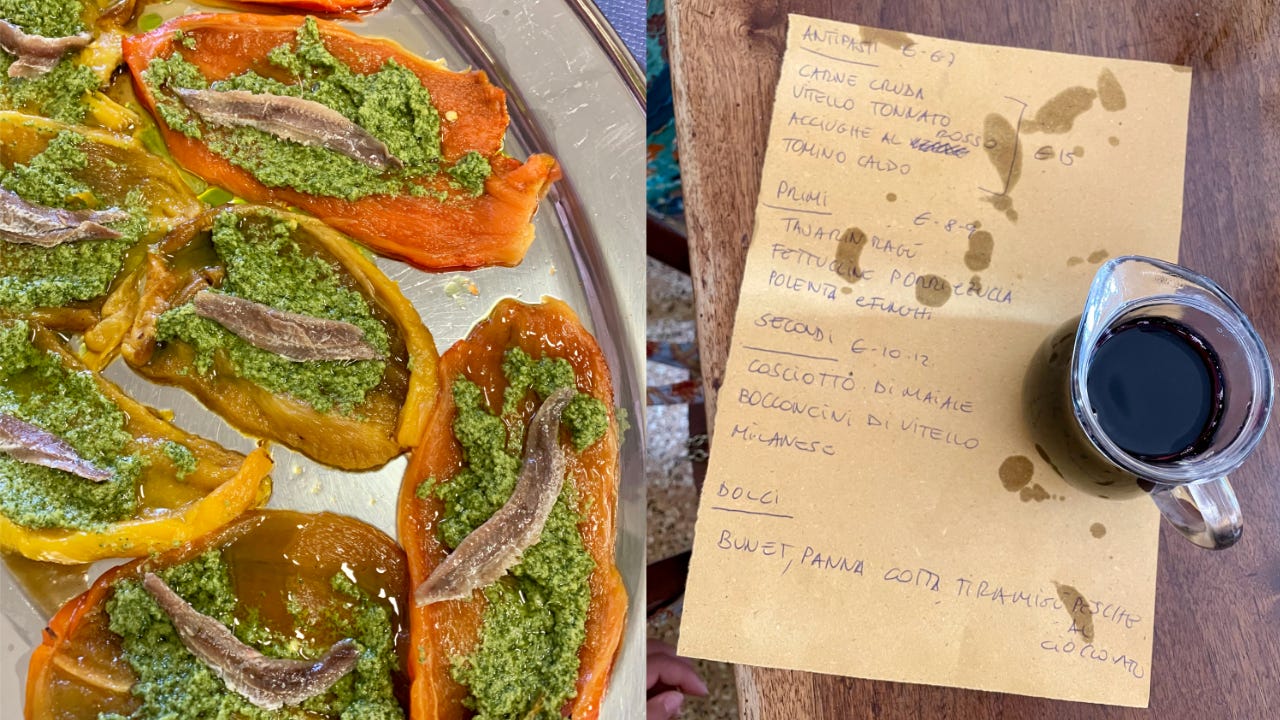 ANTIPASTI €-6-7
CARNE CRUDA
VITELLO TONNATO
ACCIUGHE AL ROSSO
TOMINO CALDO
€ 15
PRIMI
€-8-9
TAJARIN RAGÙ
FETTUCCINE PORRI E
POLENTA E FUNGHI
SECONDI €-10-12
COSCIOTTO DI MAIALE
BOCCONCINI DI VITELLO
MILANESE
DOLCI
BUNET, PANNA COTTA TIRAMISÙ PESCHE
AL
CIOCCOLATO